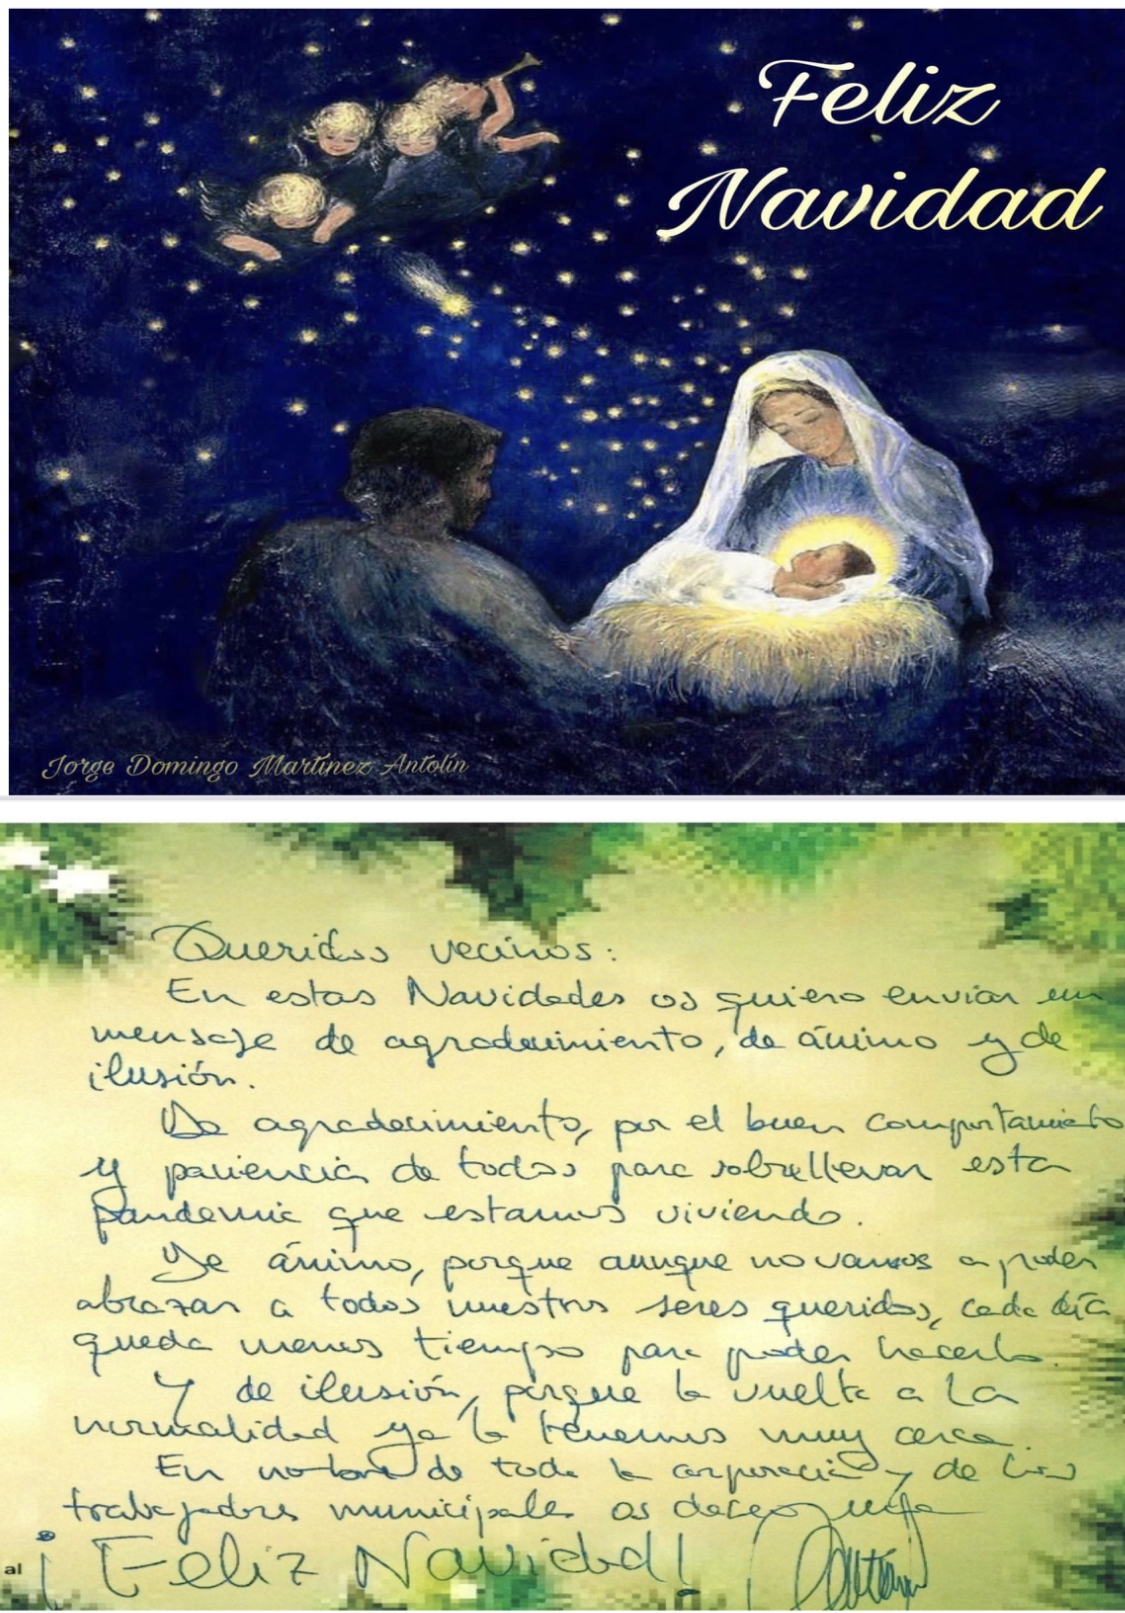 Feliz
Navidad
Jorge Domingo Martínez Antolín
Queridos vecinos:
En estas Navidades os quiero enviar un
mensaje de agradecimiento, de ánimo y de
ilusión.
De agradecimiento, por el buen comportamiento
y paciencia de todos para sobrellevar esta
pandemia que estamos viviendo.
De ánimo, porque aunque no vamos a poder
abrazar a todos nuestros seres queridos, cada día
queda menos tiempo para poder hacerlo.
Y de ilusión, porque la vuelta a la
normalidad ya la tenemos muy cerca.
En nombre de toda la corporación y de los
trabajadores municipales os deseo una
¡Feliz Navidad!
al